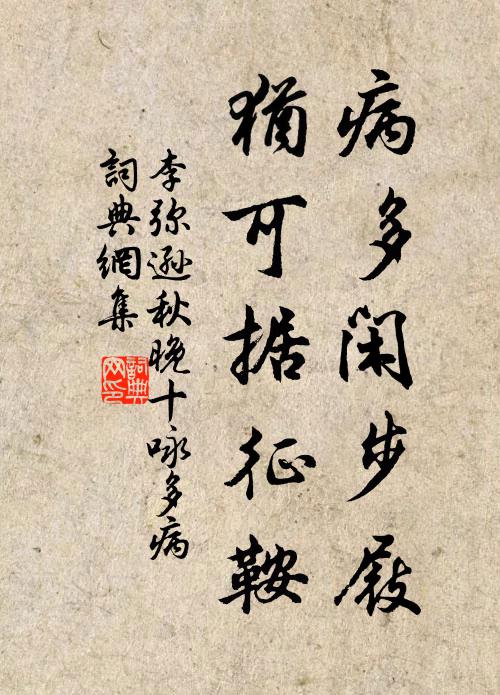 病多闲步屐
猶可据征鞍
李弥遜秋晚十咏多病
詞典網集
詞典网印